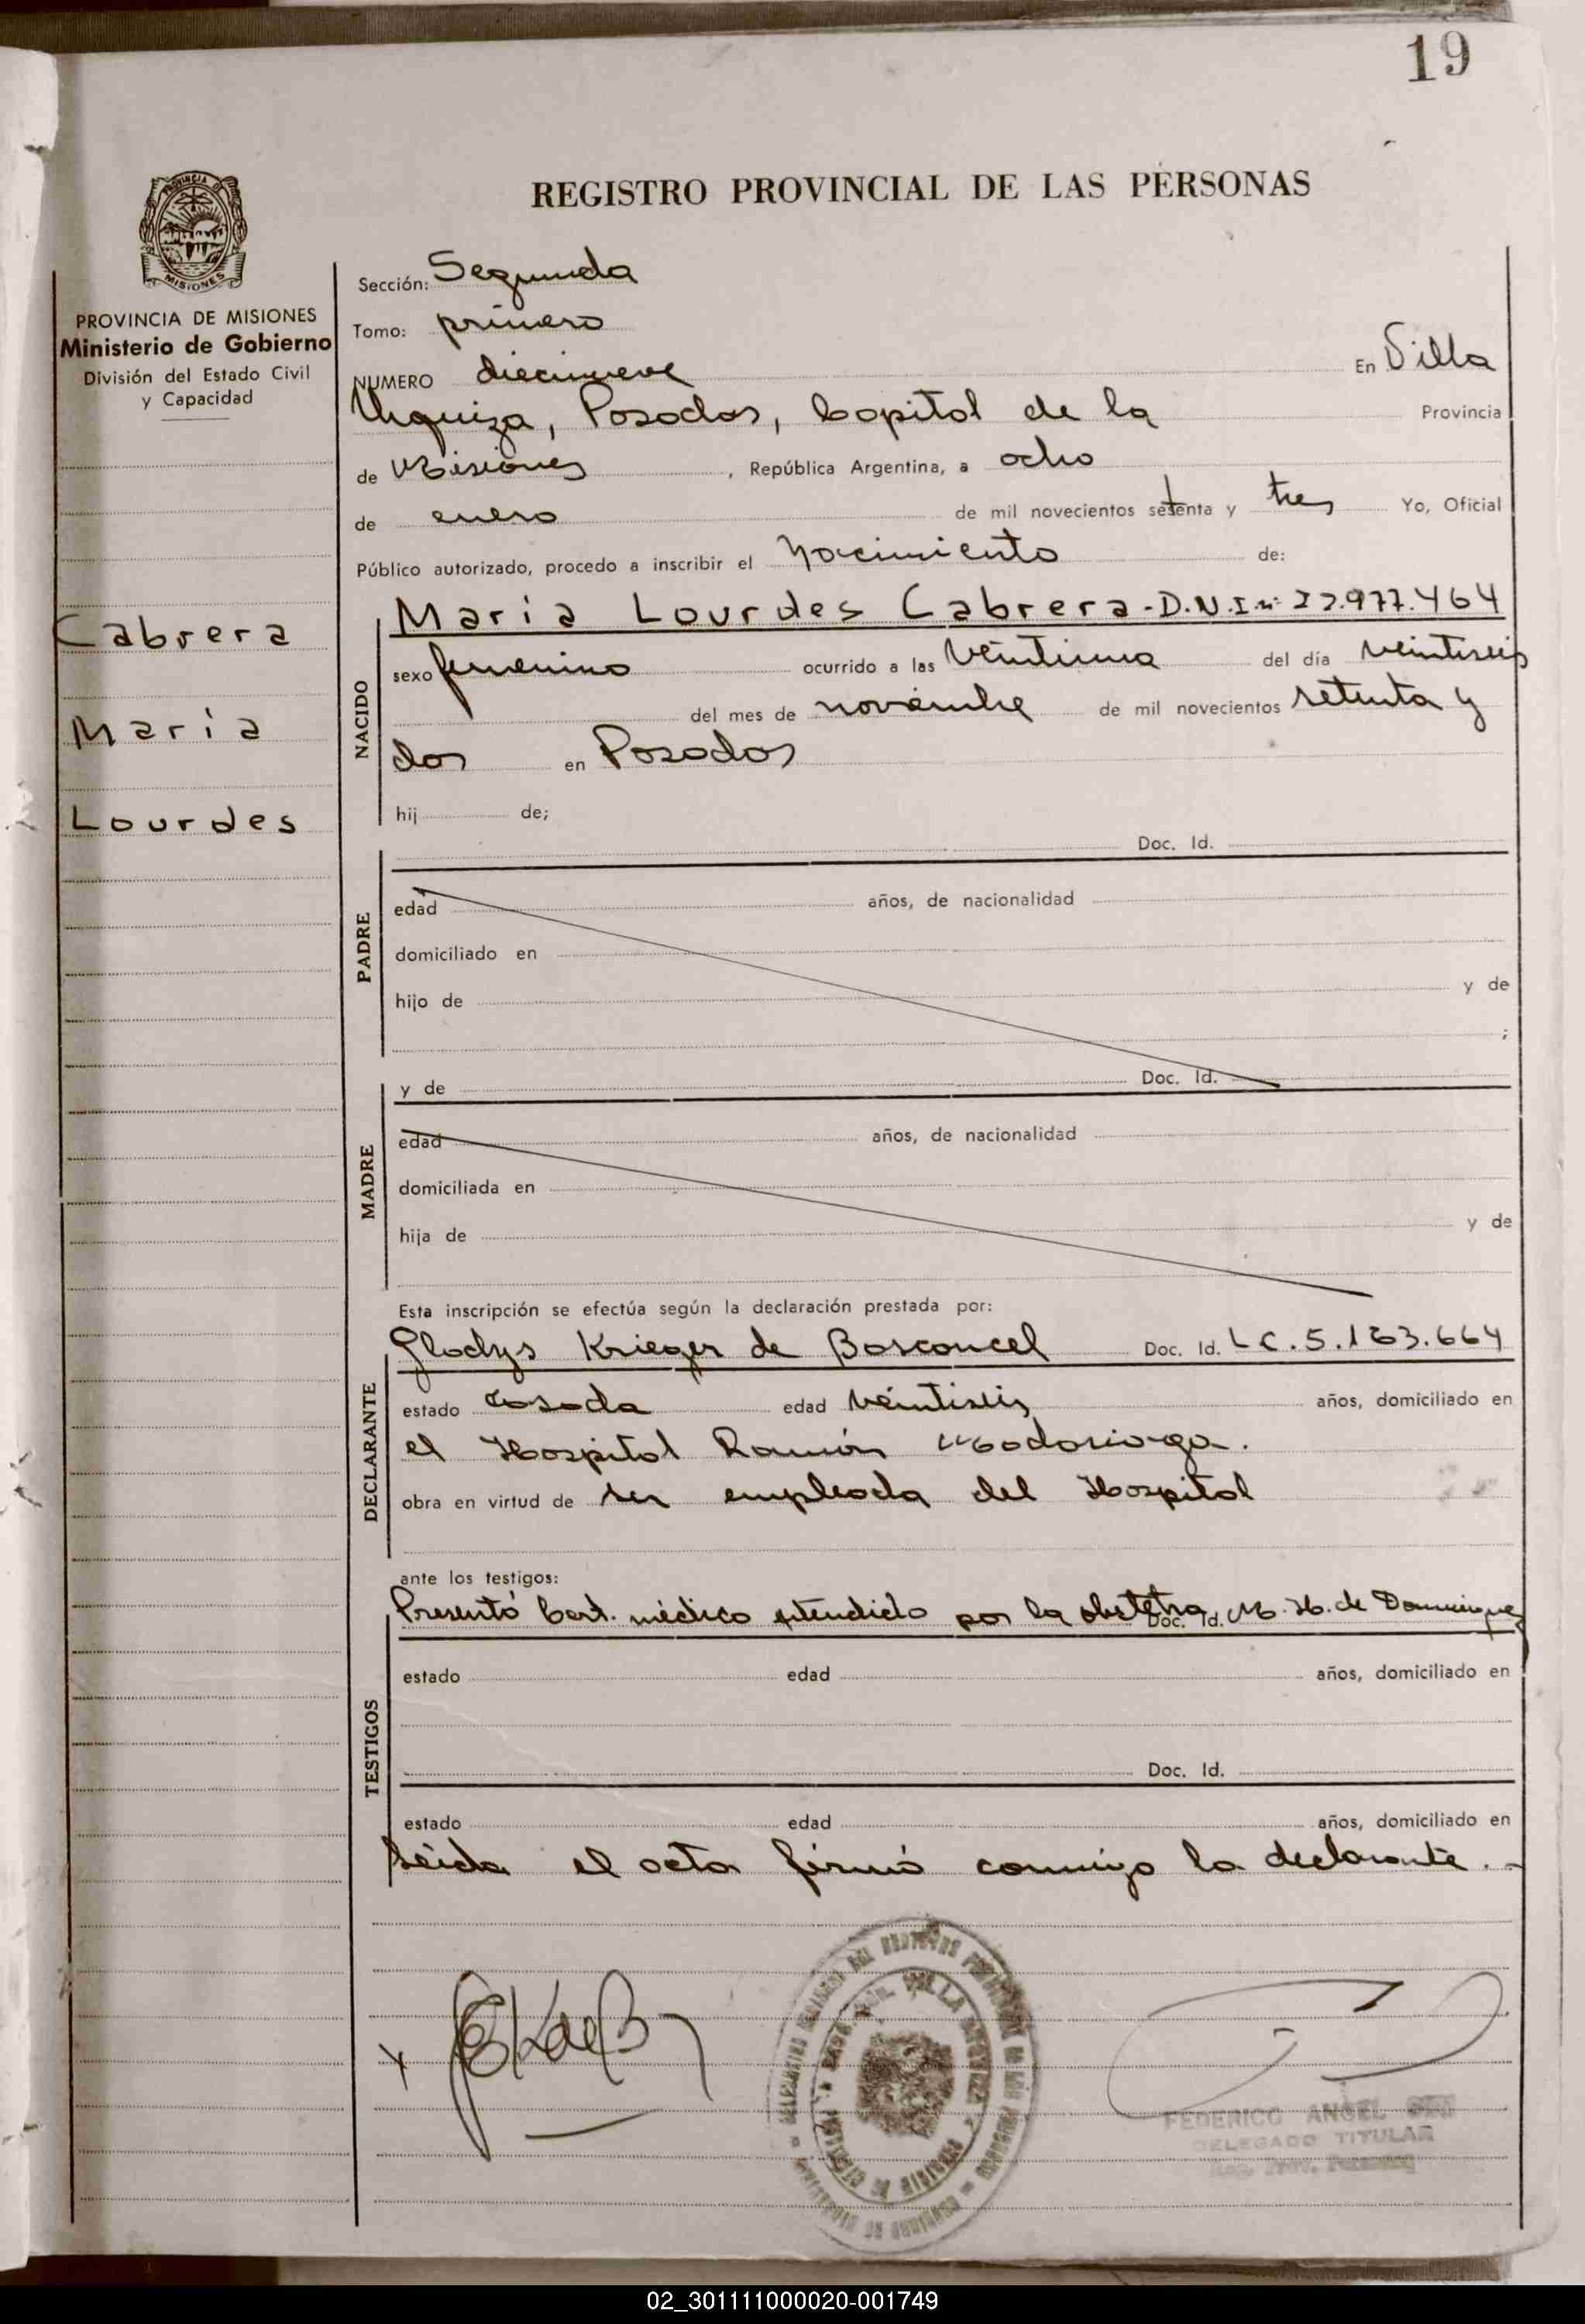 19
REGISTRO PROVINCIAL DE LAS PERSONAS
PROVINCIA DE MISIONES
Ministerio de Gobierno
División del Estado Civil
y Capacidad
Cabrera
María
Lourdes
Sección: Segunda
Tomo: primero
NUMERO diecinueve En Villa
Urquiza, Posadas, Capital de la Provincia
de Misiones, República Argentina, a ocho
de enero de mil novecientos setenta y tres Yo, Oficial
Público autorizado, procedo a inscribir el Nacimiento de:
María Lourdes Cabrera - D.N.I. nº 22.977.464
NACIDO
sexo femenino ocurrido a las veintiuna del día veintiseis
del mes de noviembre de mil novecientos setenta y
dos en Posadas
hij de;
Doc. Id.
PADRE
edad años, de nacionalidad
domiciliado en
hijo de y de
;
y de Doc. Id.
MADRE
edad años, de nacionalidad
domiciliada en
hija de y de
Esta inscripción se efectúa según la declaración prestada por:
Gladys Krieger de Bosconcel Doc. Id. LC. 5.163.664
DECLARANTE
estado casada edad veintiseis años, domiciliado en
el Hospital Ramón Madariaga.
obra en virtud de ser empleada del Hospital
ante los testigos:
Presentó Cert. médico extendido por la obstetra M. H. de Dominguez
Doc. Id.
TESTIGOS
estado edad años, domiciliado en
Doc. Id.
estado edad años, domiciliado en
Leida el acta firmó conmigo la declarante.-
FEDERICO ANGEL
DELEGADO TITULAR
02_301111000020-001749